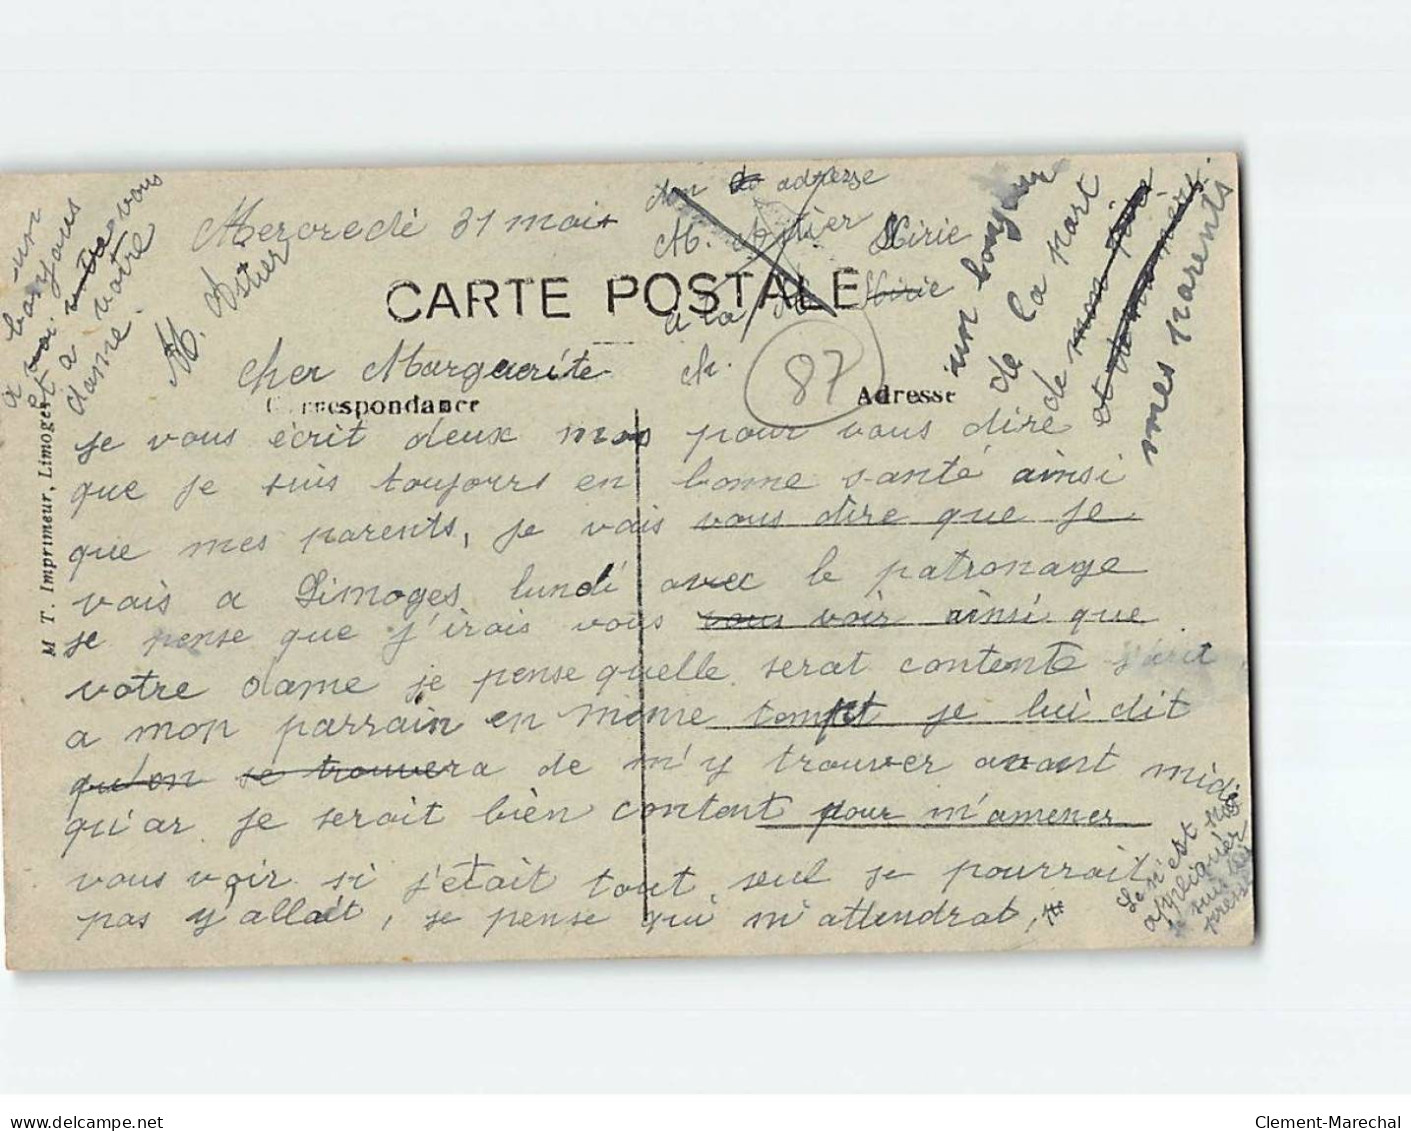 Mercredi 31 mais
mon adresse
M. Astier Mirie
Mirie
a la
M.
87
CARTE POSTALE
Correspondance
Adresse
M T. Imprimeur, Limoges
cher Marguerite
je vous écrit deux mos pour vous dire
que je suis toujours en bonne santé ainsi
que mes parents, je vais vous dire que je
vais a Limoges lundi avec le patronage
je pense que j'irais vous vous voir ainsi que
votre dame je pense quelle serat contente
a mon parrain en même tempt je lui dit
qu'on se trouvera de m'y trouver avant midi
qu'ar je serait bien content pour m'amener
vous voir si j'était tout seul je pourrait
pas y'allait, je pense qui m'attendrat,
un bonjour
de la part
de mon père
et de ma mère
mes parents
un
bonjour
a vous
et a votre
dame.
M. Astier
Se n'est pas
appliquer
je suis
presse
Clement-Marechal
www.delcampe.net